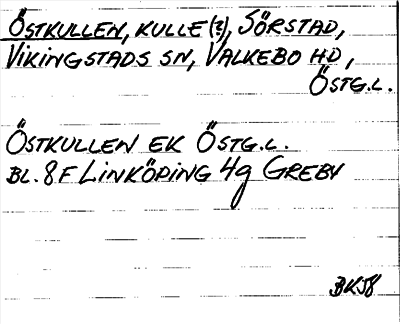 ÖSTKULLEN, KULLE (?), SÖRSTAD,
VIKINGSTADS SN, VALKEBO HD,
ÖSTG.L.
ÖSTKULLEN EK ÖSTG.L.
BL. 8F LINKÖPING 4g GREBY
BK58